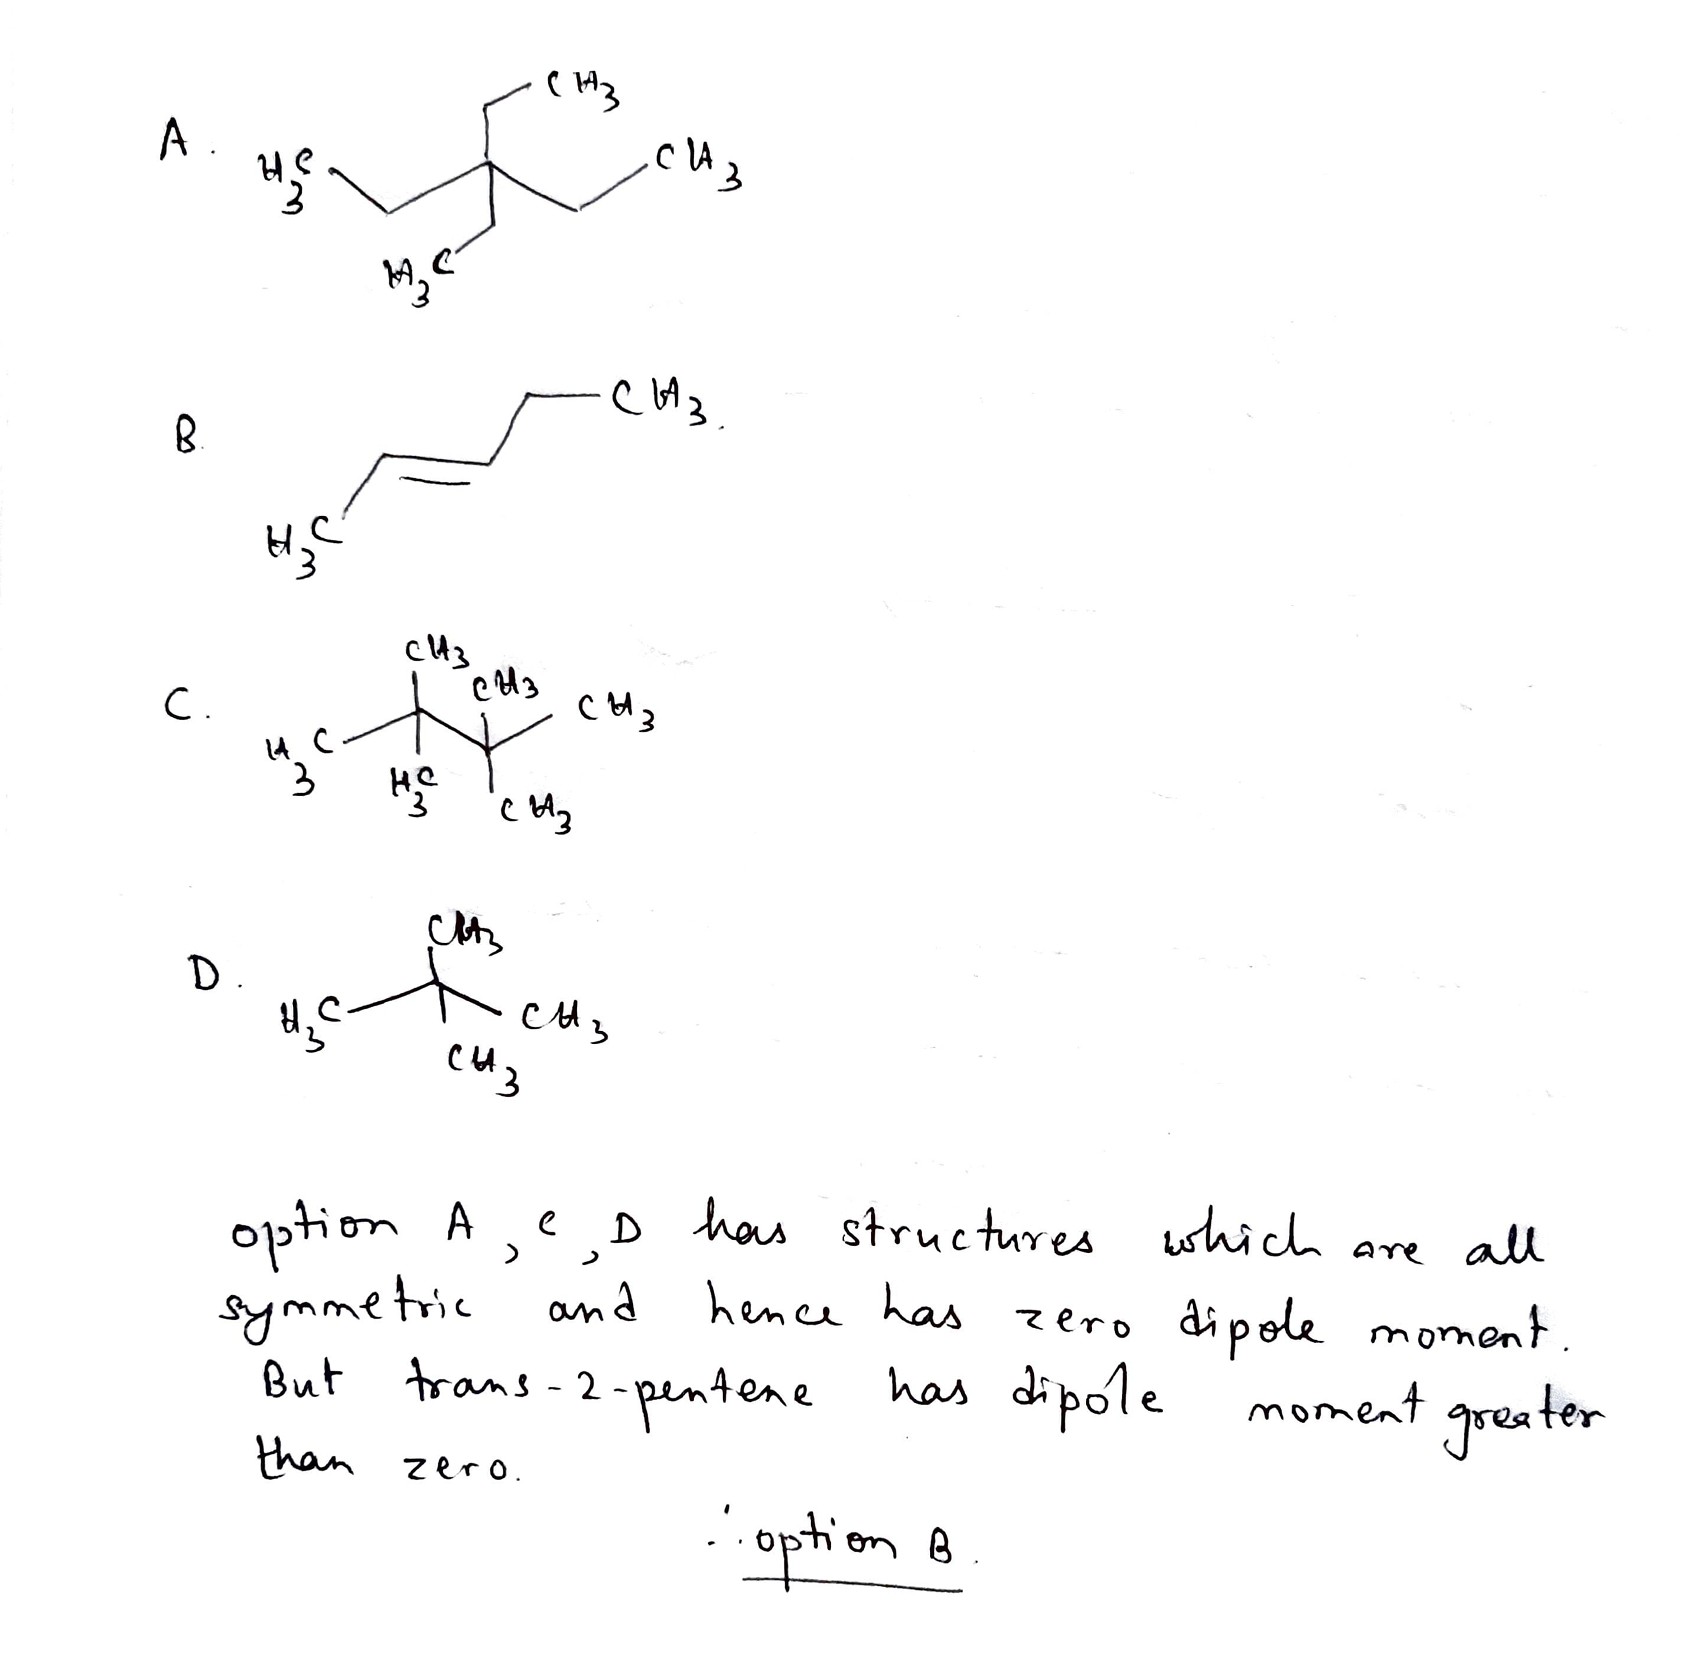 A.
CH3
H3C
CH3
H3C
B.
CH3.
H3C
C.
CH3
CH3
CH3
H3C
H3C
CH3
D.
CH3
H3C
CH3
CH3
option A, C, D has structures which are all
symmetric and hence has zero dipole moment.
But trans-2-pentene has dipole moment greater
than zero.
∴ option B.